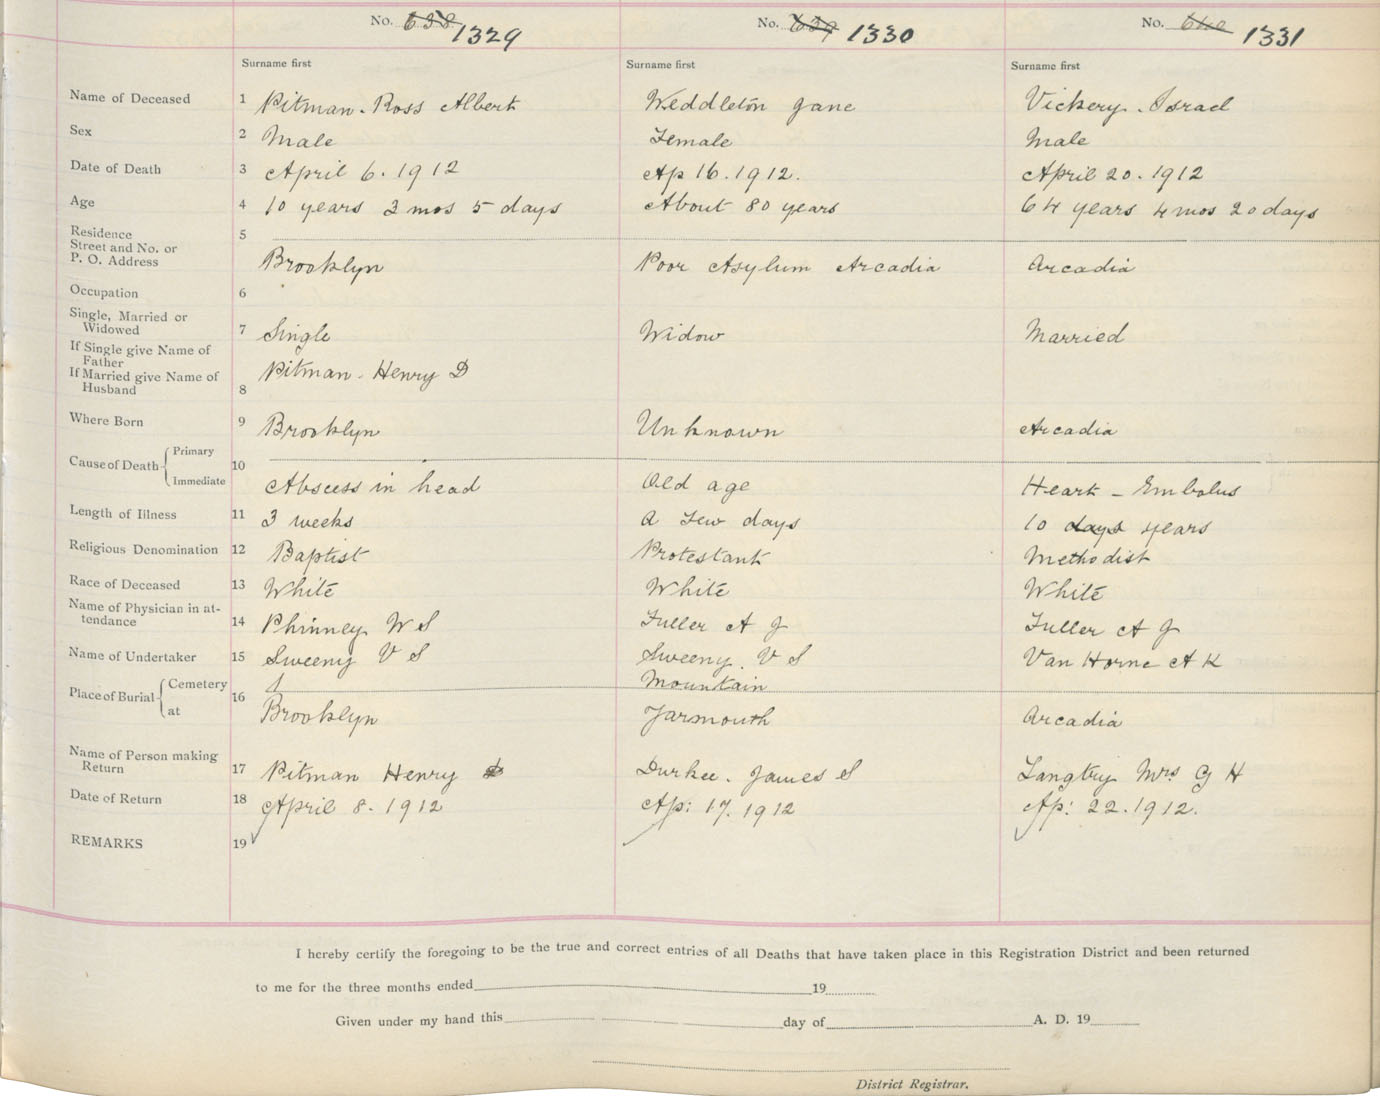 No. 638 1329 No. 639 1330 No. 640 1331
Surname first Surname first Surname first
Name of Deceased 1 Pitman. Ross Albert Weddleton Jane Vickery. Israel
Sex 2 Male Female Male
Date of Death 3 April 6. 1912 Ap 16. 1912. April 20. 1912
Age 4 10 years 3 mos 5 days About 80 years 64 years 4 mos 20 days
Residence 5
Street and No. or
P. O. Address Brooklyn Poor Asylum Arcadia Arcadia
Occupation 6
Single, Married or
Widowed 7 Single Widow Married
If Single give Name of
Father
If Married give Name of Pitman - Henry D
Husband 8
Where Born 9 Brooklyn Unknown Arcadia
Cause of Death Primary 10
Immediate Abscess in head Old age Heart - Embolus
Length of Illness 11 3 weeks a few days 10 days years
Religious Denomination 12 Baptist Protestant Methodist
Race of Deceased 13 White White White
Name of Physician in at-
tendance 14 Phinney W S Fuller A J Fuller A J
Name of Undertaker 15 Sweeny V S Sweeny. V S Van Horne A K
Place of Burial Cemetery 16 Mountain
at Brooklyn Yarmouth Arcadia
Name of Person making
Return 17 Pitman Henry D Durkee. James S Langtry Mrs G H
Date of Return 18 April 8. 1912 Ap: 17. 1912 Ap: 22. 1912.
REMARKS 19
I hereby certify the foregoing to be the true and correct entries of all Deaths that have taken place in this Registration District and been returned
to me for the three months ended 19
Given under my hand this day of A. D. 19
District Registrar.